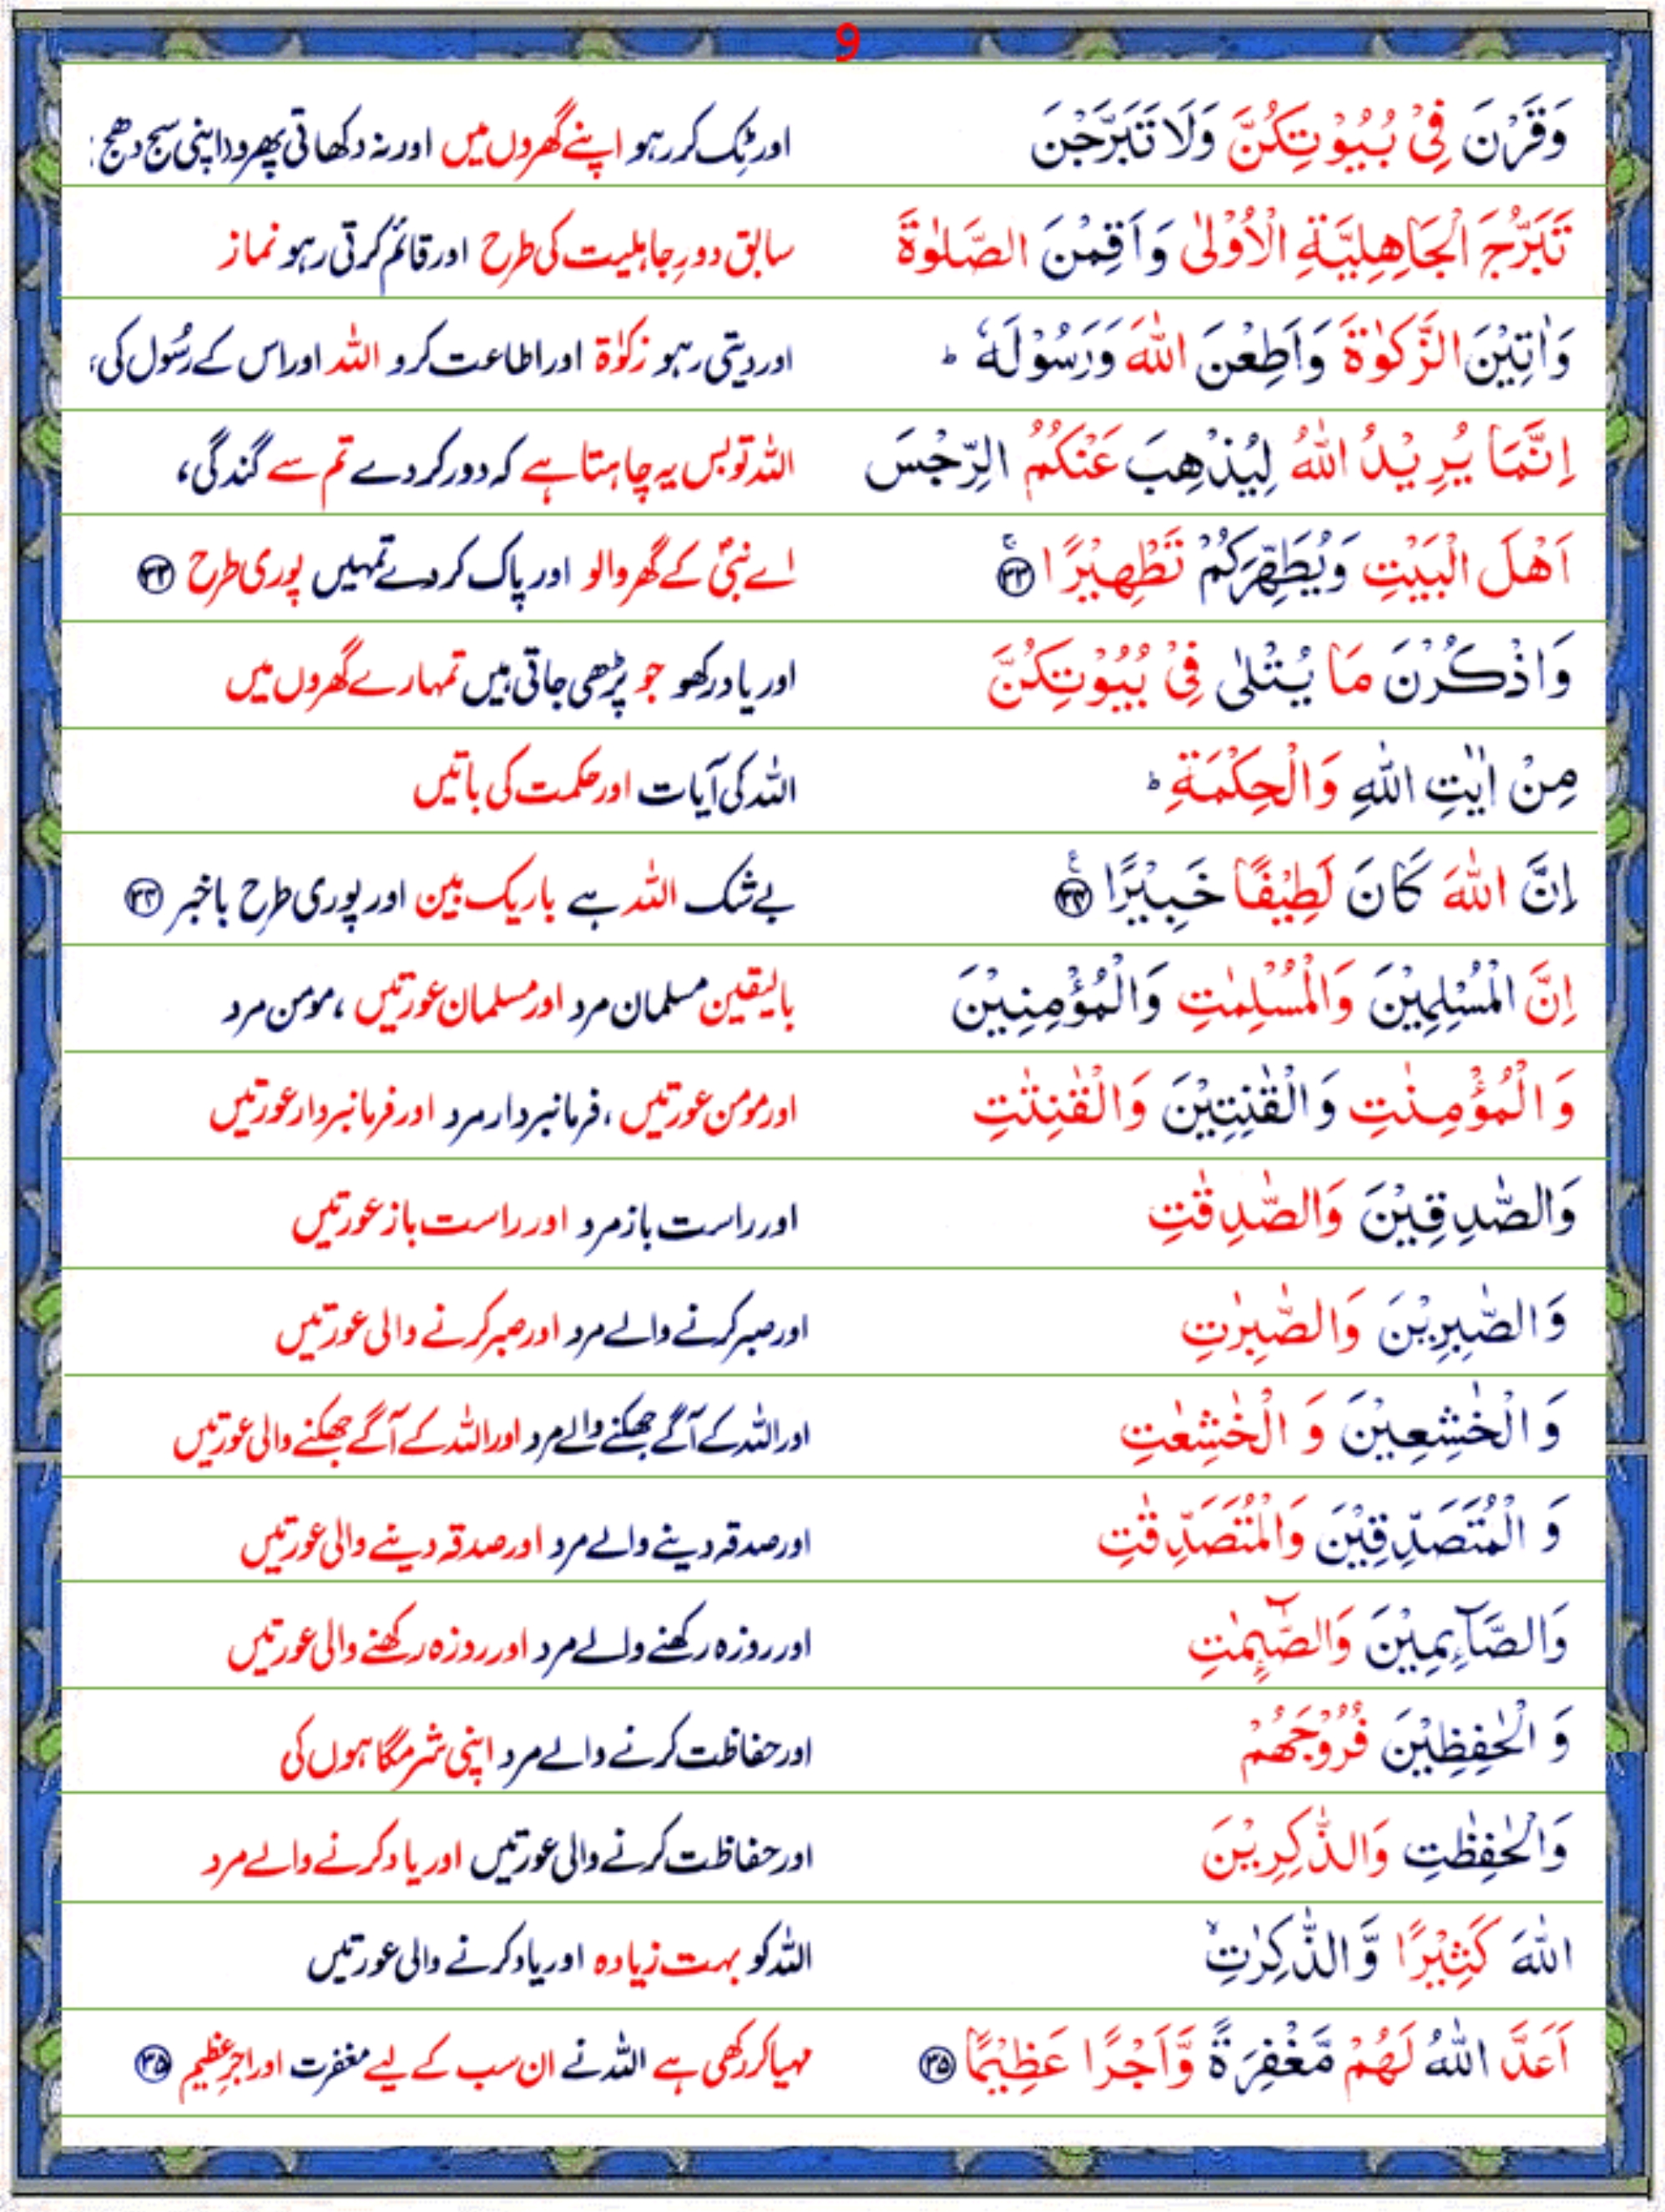 9
وَقَرْنَ فِيْ بُيُوْتِكُنَّ وَلَا تَبَرَّجْنَ اور ٹِک کر رہو اپنے گھروں میں اور نہ دکھاتی پھرو (اپنی سج دھج
تَبَرُّجَ الْجَاهِلِيَّةِ الْاُوْلٰى وَاَقِمْنَ الصَّلٰوةَ سابق دورِ جاہلیت کی طرح اور قائم کرتی رہو نماز
وَاٰتِيْنَ الزَّكٰوةَ وَاَطِعْنَ اللّٰهَ وَرَسُوْلَهٗ ؕ اور دیتی رہو زکوٰۃ اور اطاعت کرو اللہ اور اس کے رسُول کی،
اِنَّمَا يُرِيْدُ اللّٰهُ لِيُذْهِبَ عَنْكُمُ الرِّجْسَ اللہ تو بس یہ چاہتا ہے کہ دور کر دے تم سے گندگی،
اَهْلَ الْبَيْتِ وَيُطَهِّرَكُمْ تَطْهِيْرًا ۚ ۳۳ اے نبیؐ کے گھر والو اور پاک کر دے تمہیں پوری طرح ۳۳
وَاذْكُرْنَ مَا يُتْلٰى فِيْ بُيُوْتِكُنَّ اور یاد رکھو جو پڑھی جاتی ہیں تمہارے گھروں میں
مِنْ اٰيٰتِ اللّٰهِ وَالْحِكْمَةِ ؕ اللہ کی آیات اور حکمت کی باتیں
اِنَّ اللّٰهَ كَانَ لَطِيْفًا خَبِيْرًا ۳۴ بے شک اللہ ہے باریک بین اور پوری طرح باخبر ۳۴
اِنَّ الْمُسْلِمِيْنَ وَالْمُسْلِمٰتِ وَالْمُؤْمِنِيْنَ بالیقین مسلمان مرد اور مسلمان عورتیں، مومن مرد
وَالْمُؤْمِنٰتِ وَالْقٰنِتِيْنَ وَالْقٰنِتٰتِ اور مومن عورتیں، فرمانبردار مرد اور فرمانبردار عورتیں
وَالصّٰدِقِيْنَ وَالصّٰدِقٰتِ اور راست باز مرد اور راست باز عورتیں
وَالصّٰبِرِيْنَ وَالصّٰبِرٰتِ اور صبر کرنے والے مرد اور صبر کرنے والی عورتیں
وَالْخٰشِعِيْنَ وَالْخٰشِعٰتِ اور اللہ کے آگے جھکنے والے مرد اور اللہ کے آگے جھکنے والی عورتیں
وَالْمُتَصَدِّقِيْنَ وَالْمُتَصَدِّقٰتِ اور صدقہ دینے والے مرد اور صدقہ دینے والی عورتیں
وَالصَّآىِٕمِيْنَ وَالصّٰٓىِٕمٰتِ اور روزہ رکھنے والے مرد اور روزہ رکھنے والی عورتیں
وَالْحٰفِظِيْنَ فُرُوْجَهُمْ اور حفاظت کرنے والے مرد اپنی شرمگاہوں کی
وَالْحٰفِظٰتِ وَالذّٰكِرِيْنَ اور حفاظت کرنے والی عورتیں اور یاد کرنے والے مرد
اللّٰهَ كَثِيْرًا وَّالذّٰكِرٰتِ ۙ اللہ کو بہت زیادہ اور یاد کرنے والی عورتیں
اَعَدَّ اللّٰهُ لَهُمْ مَّغْفِرَةً وَّاَجْرًا عَظِيْمًا ۳۵ مہیا کر رکھی ہے اللہ نے ان سب کے لیے مغفرت اور اجرِ عظیم ۳۵